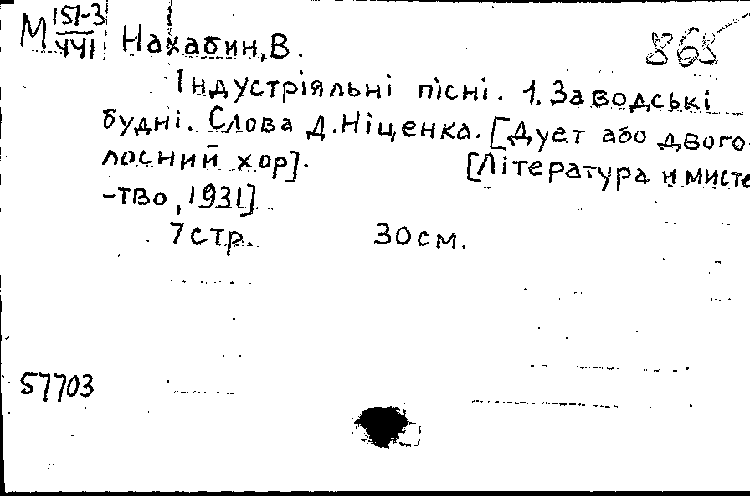 М 151-3 Нахабин, В. 868
441
Індустріяльні пісні. 1. Заводські
будні. Слова Д. Ніценка. [Дует або двого-
лосний хор]. [Література и мисте
-тво, 1931]
7 стр. 30 см.
57703